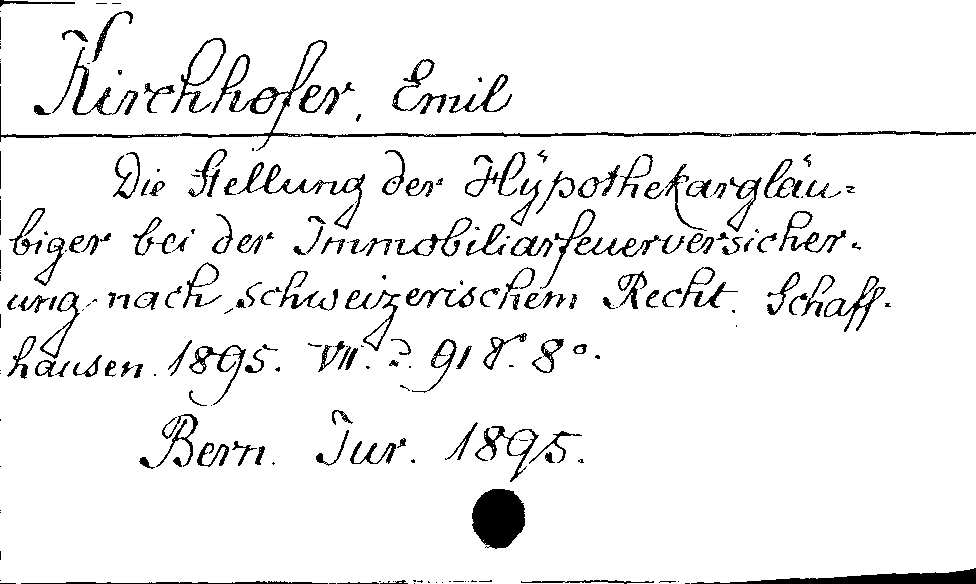 Kirchhofer, Emil
Die Stellung der Hÿpothekargläu-
biger bei der Immobiliarfeuerversicher-
ung nach schweizerischem Recht. Schaff-
hausen 1895. VII. 91 S. 8°.
Bern. Jur. 1895.